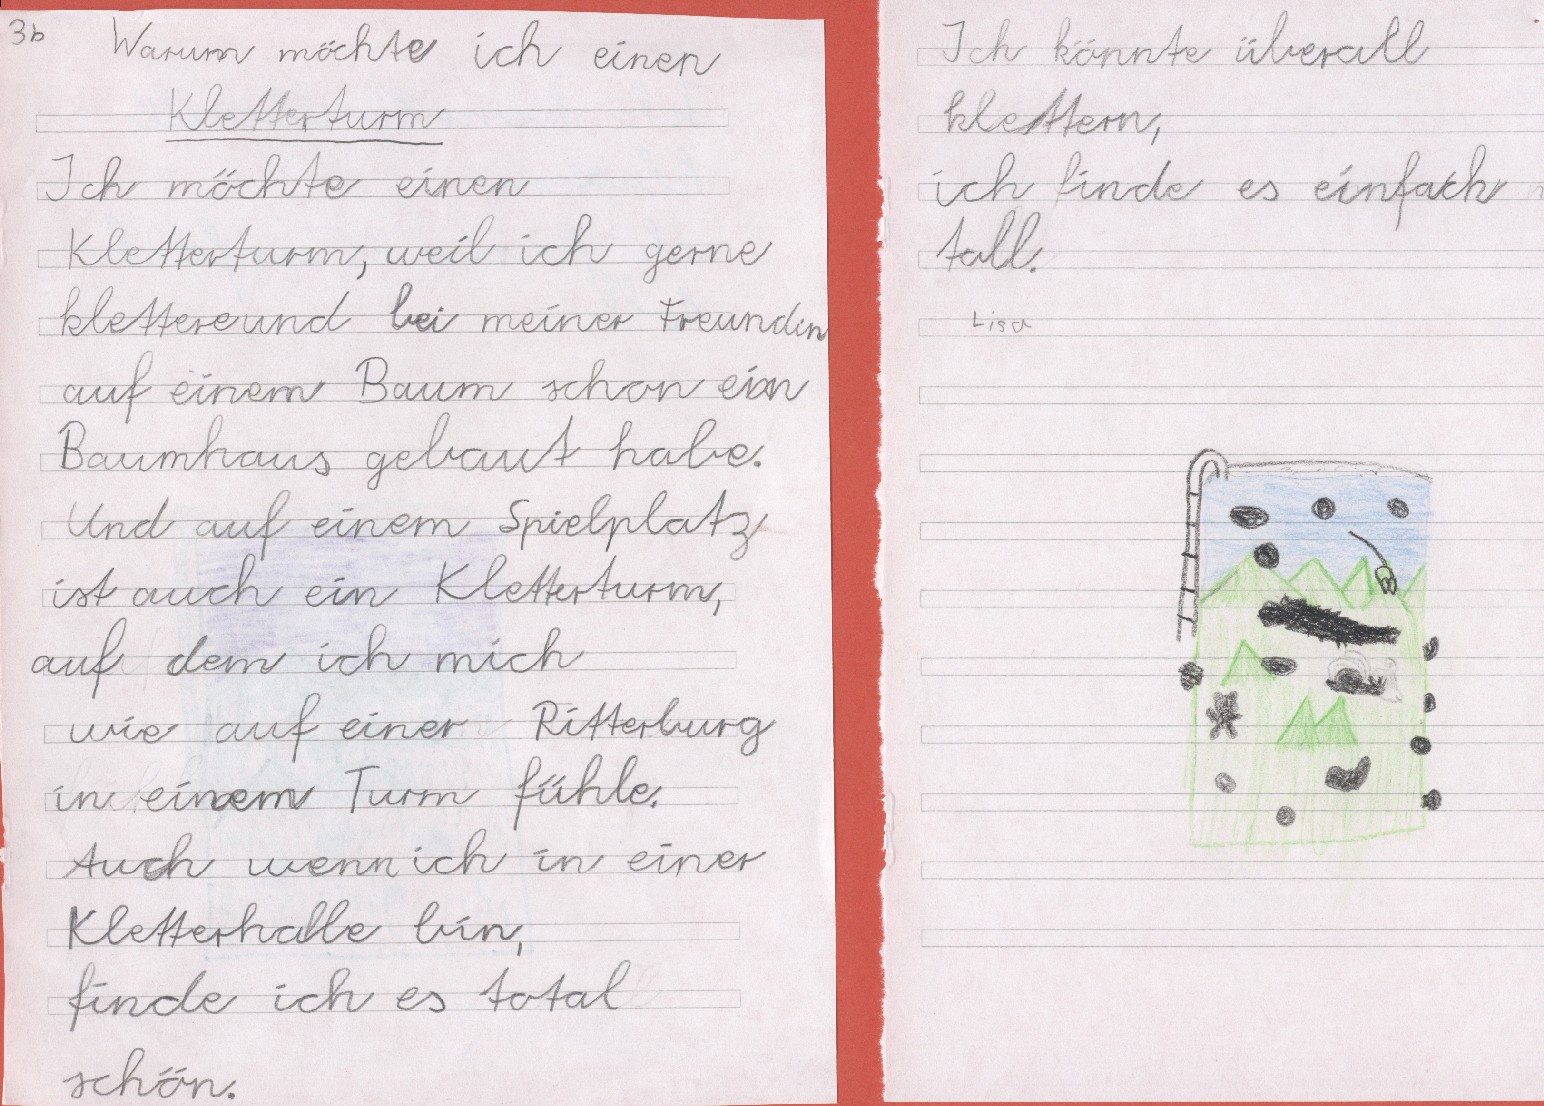 3b
Warum möchte ich einen
Kletterturm
Ich möchte einen
Kletterturm, weil ich gerne
klettere und bei meiner Freundin
auf einem Baum schon ein
Baumhaus gebaut habe.
Und auf einem Spielplatz
ist auch ein Kletterturm,
auf dem ich mich
wie auf einer Ritterburg
in einem Turm fühle.
Auch wenn ich in einer
Kletterhalle bin,
finde ich es total
schön.
Ich könnte überall
klettern,
ich finde es einfach
toll.
Lisa